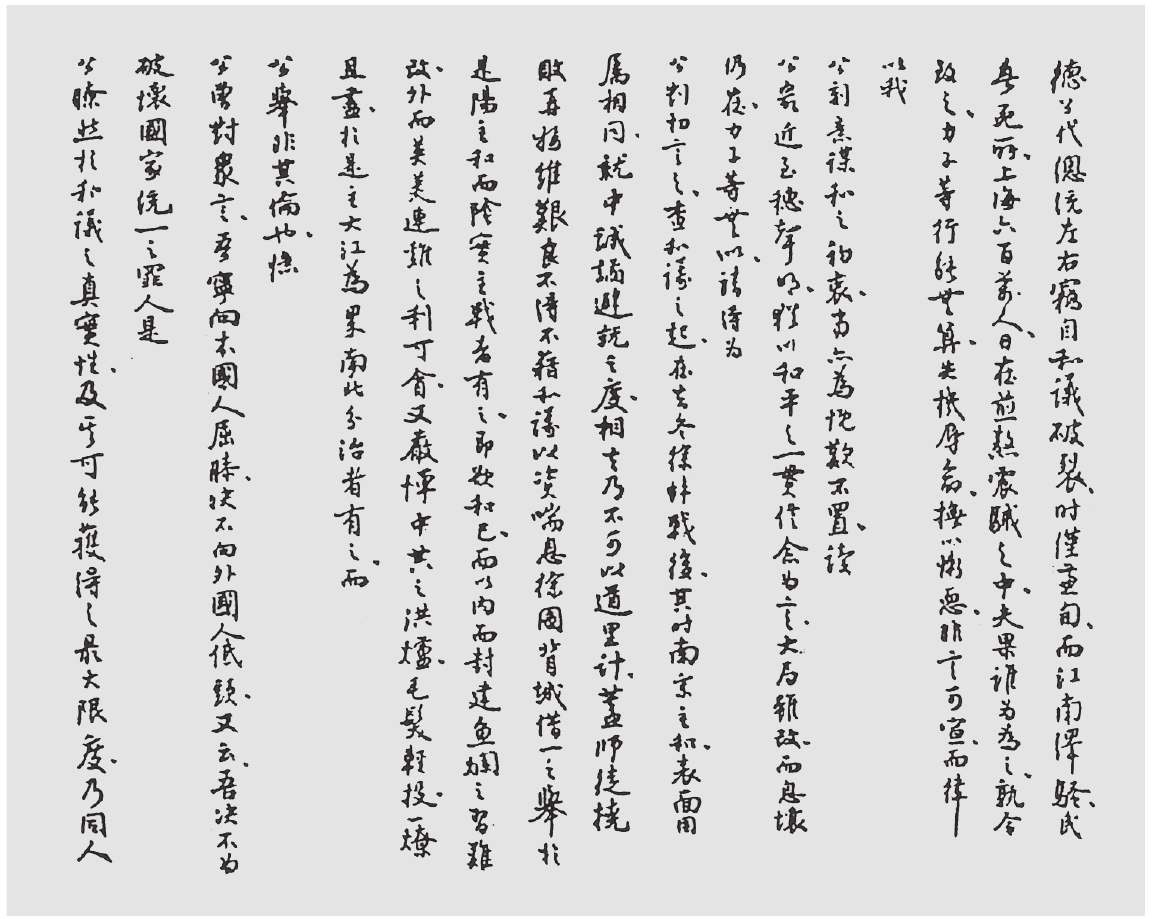 德公代總統左右竊自和議破裂、时僅兼旬、而江南澤騷、民
無死所、上海六百萬人、日在煎熬震駴之中、夫果谁为為之、孰令
致之、力子等行能無算、失機辱命、撫心慚恧、非言可宣、而律
以我
公刻意謀和之初衷、当亦為悅歎不置、读
公最近至穗聲明、猶以和平之一貫信念为言、大局雖改、而息壤
仍在、力子等無以請得为
公剀切言之、查和議之起、在去冬徐蚌戰後、其时南京主和、表面用
属相同、就中誠譎避就之度、相去乃不可以道里計、蓋師徒撓
敗、再振維艱、良不得不藉和議以资喘息、徐圖背城借一之舉、於
是陽主和而陰實主戰者有之、即欲和已、而以内而封建鱼爛之習難
改、外而英美連雞之利可貪、又嚴憚中共之洪爐、毛髮輕投、一燎
且盡、於是主大江為界、南北分治者有之、而
公舉非其倫也、憶
公嘗對衆言、吾寧向本國人屈膝、决不向外國人低頭、又云、吾决不为
破壞國家統一之罪人、是
公瞭然於和議之真實性、及其可能獲得之最大限度、乃同人